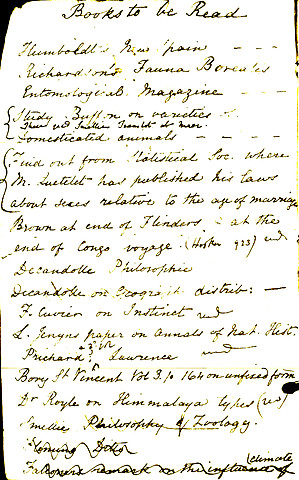 Books to be Read
Humboldt's New Spain — — —
Richardson's Fauna Borealis
Entomological Magazine — — —
Study Buffon on varieties of
Domesticated animals — — —
Find out from Statistical Soc. where
M. Quetelet has published his laws
about sexes relative to the age of marriage
Brown at end of Flinders & at the
end of Congo voyage (Hooker 923) read
Decandolle Philosophie
Decandolle on Geograph distrib: —
F. Cuvier on Instinct read
L. Jenyns paper on Annals of Nat. Hist.
Prichard Lawrence read
Bory St Vincent Vol 3. p 164 on unfixed form
Dr Royle on Himmalaya types (read)
Smellie Philosophy of Zoology.
Fleming Ditto
Falconers remark on the influence of climate